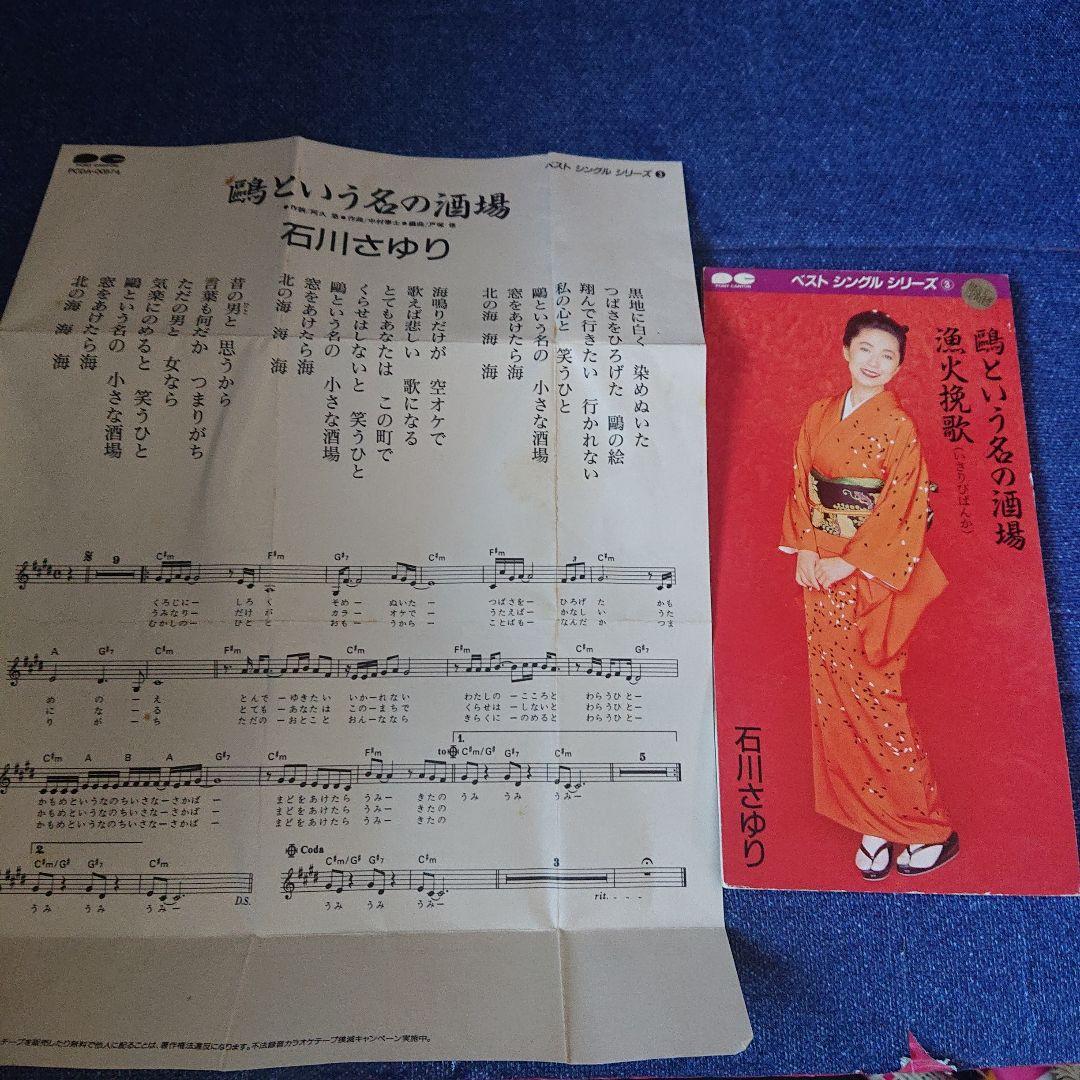 PONY CANYON
PCDA-00574
ベスト シングル シリーズ③
鷗という名の酒場
●作詞/阿久 悠●作曲/中村泰士●編曲/戸塚 修
石川さゆり
黒地に白く 染めぬいた
つばさをひろげた 鷗の絵
翔んで行きたい 行かれない
私の心と 笑うひと
鷗という名の 小さな酒場
窓をあけたら海
北の海 海 海
海鳴りだけが 空オケで
歌えば悲しい 歌になる
とてもあなたは この町で
くらせはしないと 笑うひと
鷗という名の 小さな酒場
窓をあけたら海
北の海 海 海
昔の男と 思うから
言葉も何だか つまりがち
ただの男と 女なら
気楽にのめると 笑うひと
鷗という名の 小さな酒場
窓をあけたら海
北の海 海 海
9 C#m F#m G#7 C#m F#m 3 C#m
くろじにー しろく そめー ぬいたー つばさをー ひろげ た かも
うみなりー だけが カラー オケでー うたえばー かなし い うた
むかしのー ひとと おもー うからー ことばもー なんだ か つま
A G#7 C#m F#m C#m F#m C#m G#7
め の ー え とんでーゆきたい いかーれない わたしのーこころと わらうひとー
に な ー る とてもーあなたは このーまちで くらせはーしないと わらうひとー
り が ー ち ただのーおとこと おんーななら きらくにーのめると わらうひとー
1.
C#m A B A G#7 C#m F#m to C#m/G# G#7 C#m 5
かもめというなのちいさなーさかばー まどをあけたら うみー きたの うみ うみ うみー
かもめというなのちいさなーさかばー まどをあけたら うみー きたの
かもめというなのちいさなーさかばー まどをあけたら うみー きたの
2.
C#m/G# G#7 C#m
うみ うみ うみー
D.S.
Coda
C#m/G# G#7 C#m 3
うみ うみ うみー
rit.
テープを販売したり無料で他人に配ることは、著作権法違反になります。不法録音カラオケテープ撲滅キャンペーン実施中。
PONY CANYON
ベスト シングル シリーズ③
鷗という名の酒場
漁火挽歌
(いさりびばんか)
石川さゆり